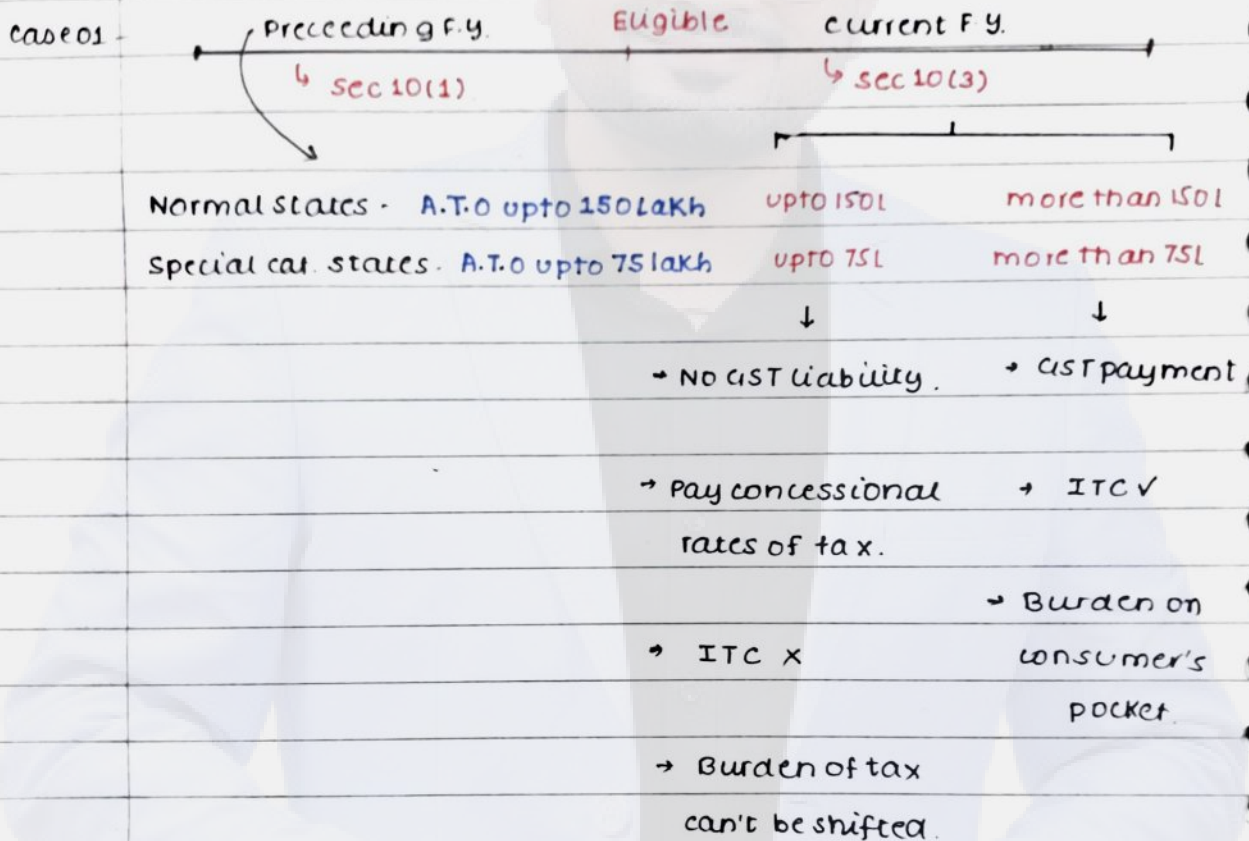 case 01 - preceeding F.Y. Eligible current F Y.
↳ sec 10(1) ↳ sec 10(3)
Normal states - A.T.O upto 150 Lakh upto 150L more than 150L
Special cat. states. A.T.O upto 75 lakh upto 75L more than 75L
↓ ↓
→ NO GST liability. → GST payment
→ Pay concessional → ITC ✓
rates of tax.
→ Burden on
→ ITC X consumer's
pocket.
→ Burden of tax
can't be shifted.